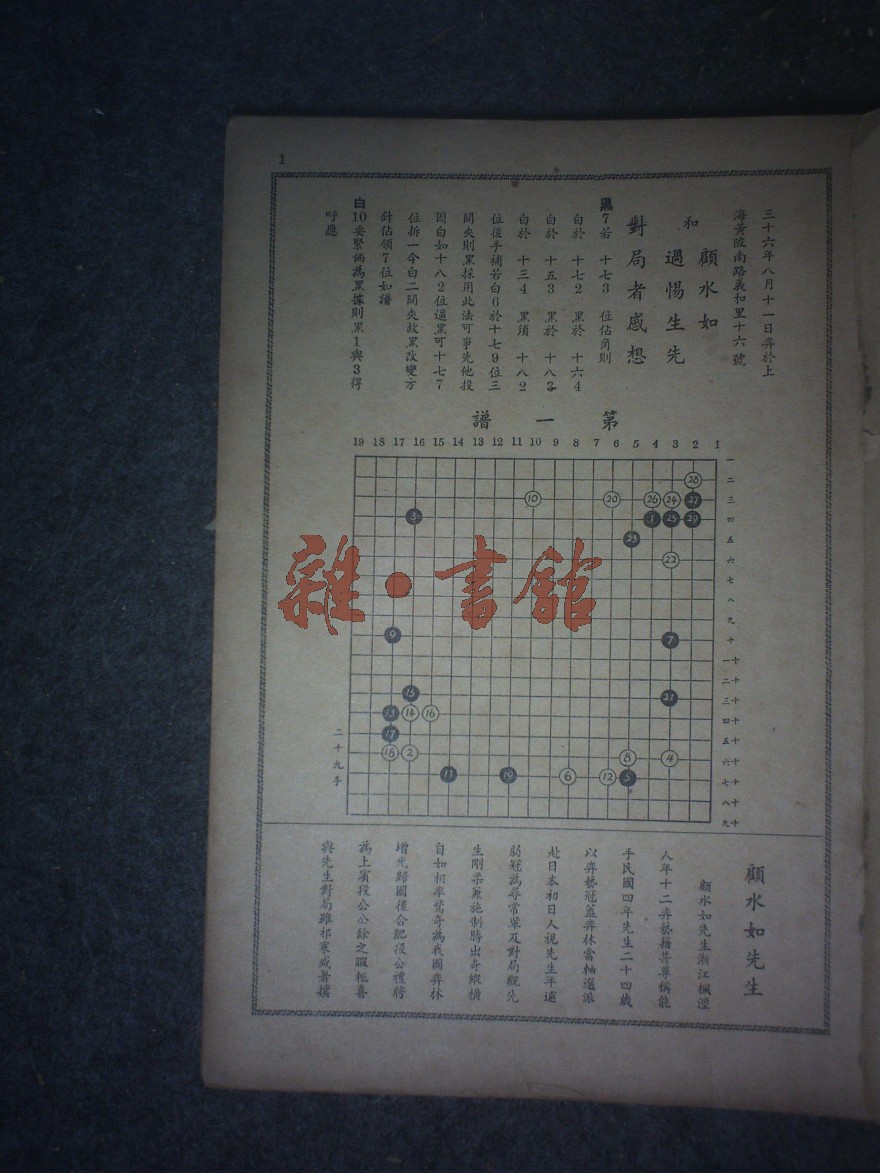 1
三十六年八月十一日弈於上
海黃陂南路義和里十六號
顧水如
和
過惕生先
對局者感想
黑7若 十七3 位佔角則
白於 十七2 黑於 十六4
白於 十五3 黑於 十八3
白於 十三4 黑須 十八2
位後手補若白6於十七9位三
間夾則黑採用此法可爭先他投
因白如十八2位逼黑可十七7
位拆一今白二間夾故黑改變方
針佔領7位如譜
白10要緊倘為黑據則黑1與3得
呼應
第一譜
19 18 17 16 15 14 13 12 11 10 9 8 7 6 5 4 3 2 1
一
二
三
四
五
六
七
八
九
十
十一
十二
十三
十四
十五
十六
十七
十八
十九
28
10 20 26 24 27
3 1 25 29
23
22
9 7
15 21
13 14 16
17
18 2 8 4
11 19 6 12 5
二十九手
顧水如先生
顧水如先生浙江楓涇
人年十二弈藝藉甚尊稱能
手民國四年先生二十四歲
以弈藝冠蓋弈林當軸選派
赴日本初日人視先生年還
弱冠為尋常輩及對局觀先
生剛柔兼施制勝出奇縱橫
自如相率驚奇為我國弈林
增光歸國後合肥段公禮聘
為上賓段公公餘之暇輒喜
與先生對局雖祁寒盛暑撰
雜·書館